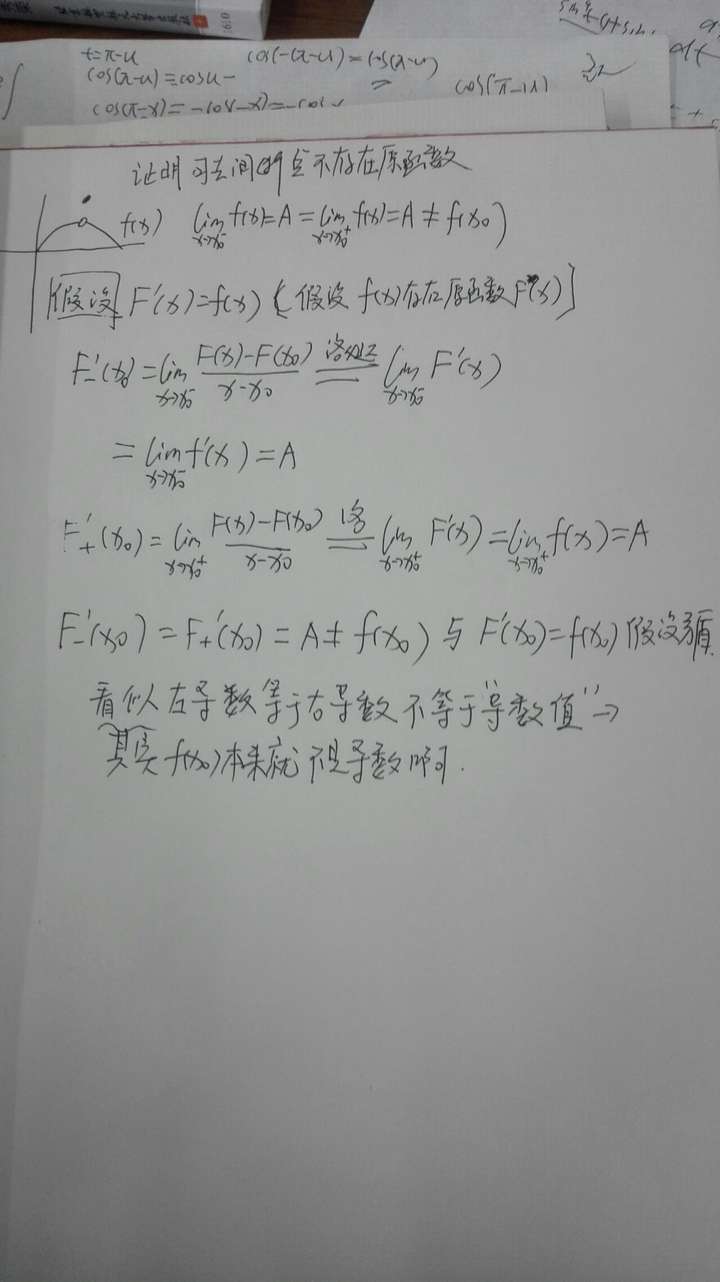 t=π-u
cos(-(π-u))=cos(π-u)
cos(π-u)=cosu-
=
cos(π-u)
cos(π-x)=-cos(-x)=-cos
证明 可去间断点不存在原函数
f(x) lim x→x0⁻ f(x)=A=lim x→x0⁺ f(x)=A≠f(x0)
假设 F'(x)=f(x) (假设 f(x)存在原函数F(x))
F-'(x0)=lim x→x0⁻ F(x)-F(x0)/x-x0 洛必达= lim x→x0⁻ F'(x)
=lim x→x0⁻ f'(x)=A
F+'(x0)=lim x→x0⁺ F(x)-F(x0)/x-x0 洛= lim x→x0⁺ F'(x)=lim x→x0⁺ f(x)=A
F-'(x0)=F+'(x0)=A≠f(x0) 与 F'(x0)=f(x0) 假设矛盾
看似左导数等于右导数不等于"导数值"→
其实 f(x0)本来就不是导数啊.